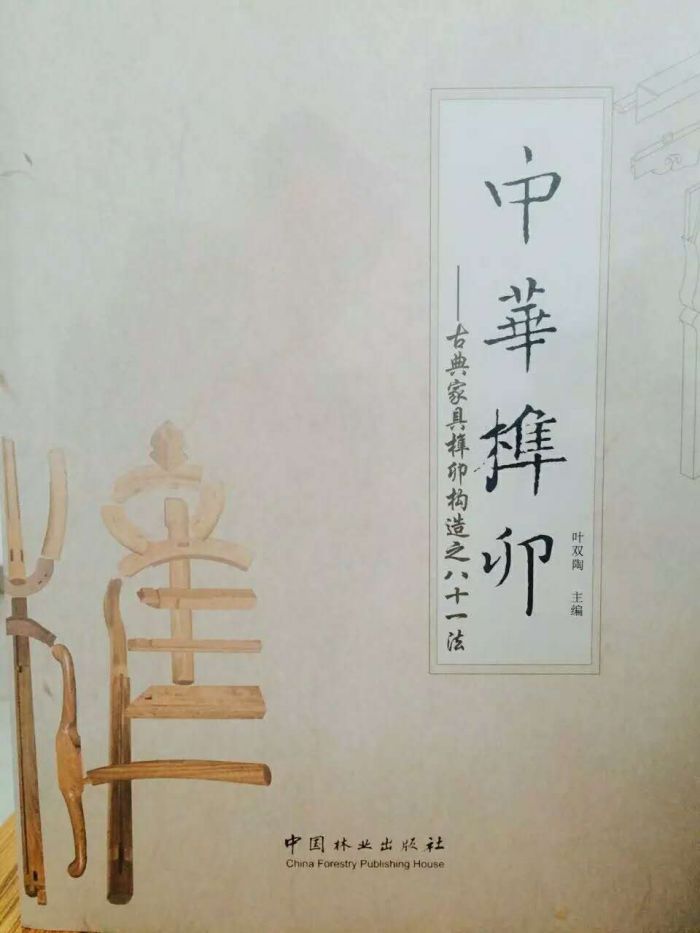 中華榫卯
——古典家具榫卯构造之八十一法
叶双陶 主编
中国林业出版社
China Forestry Publishing House